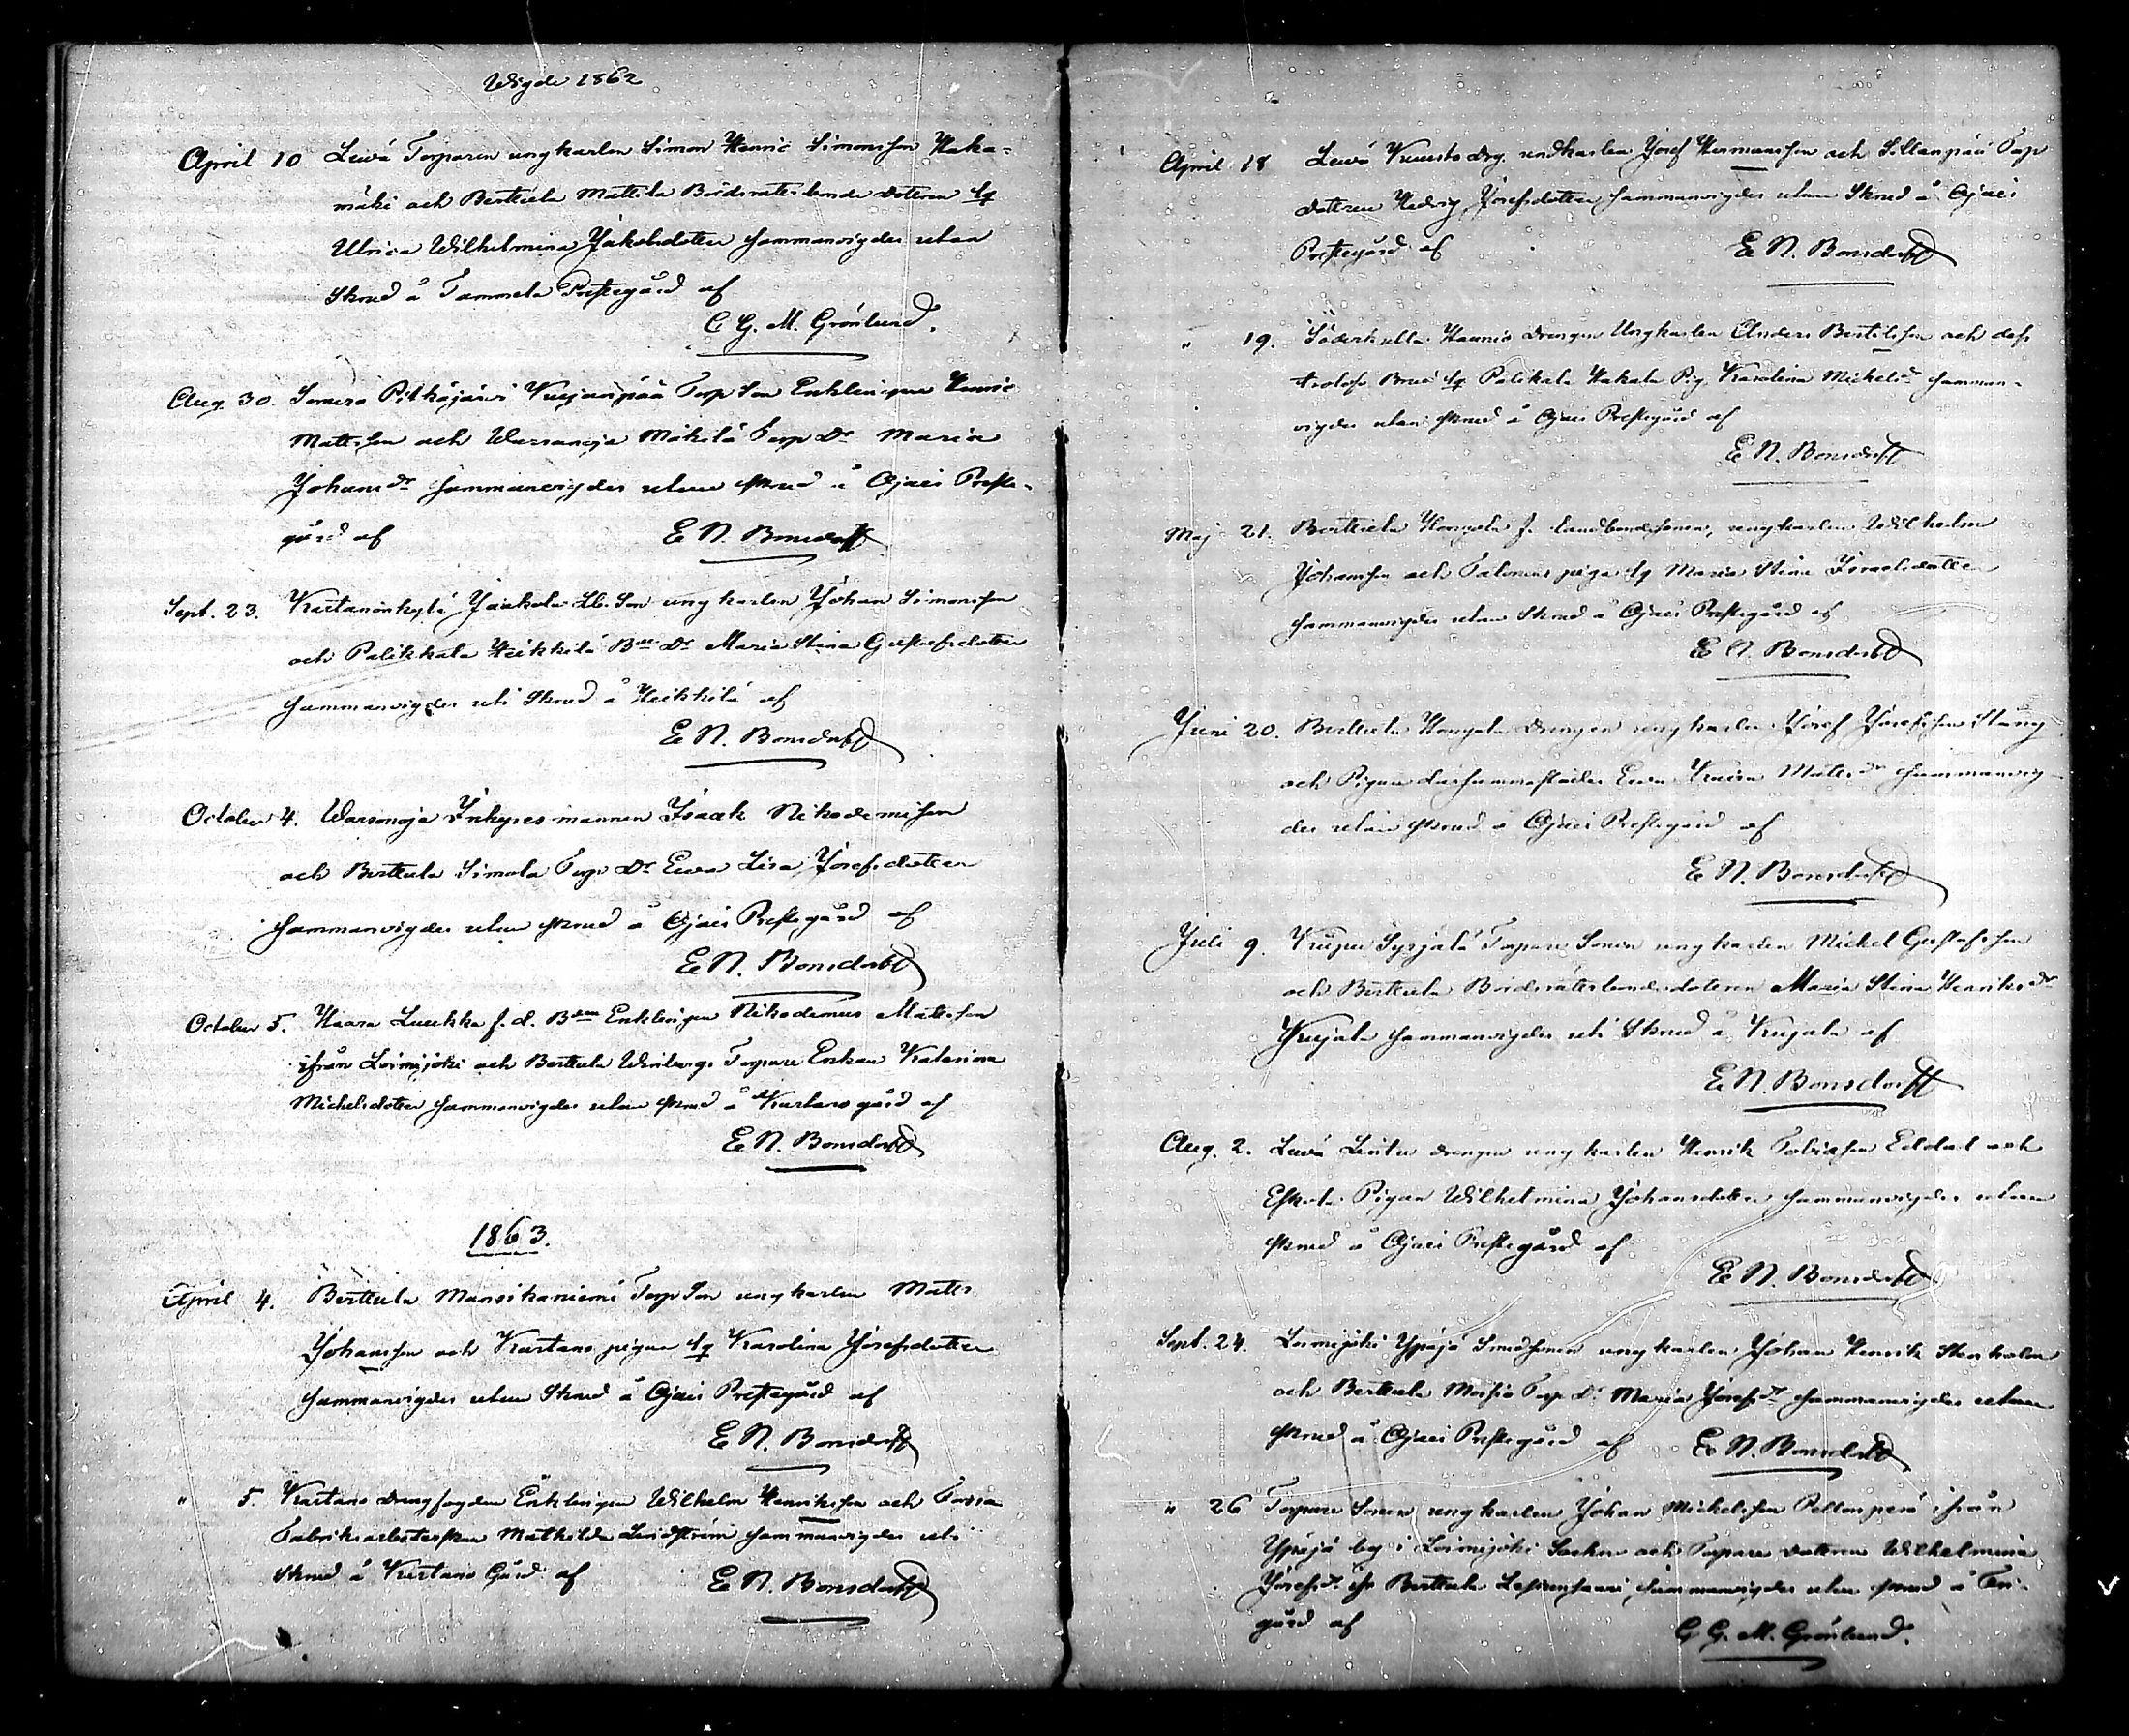 Wigde 1862
April 10 Lewä Torparen ungkarlen Simon Henric Simonsson Haka-
mäki och Berttula Mattila Bördsrättsbonde dottren Iq
Ulrica Wilhelmina Jakobsdotter sammanvigdes utan
Skrud å Tammela Prestegård af
C. G. M. Grönlund.
Aug. 30. Somero Pitkäjärvi Torp Son Enklingen Henric
Mattsson och Warsanoja Mäkilä Torp Dr Maria
Johansdr sammanvigdes utan skrud å Ojais Preste-
gård af E N. Bonsdorff
Sept. 23. Kartanonkylä Jaakola Lb. Son ungkarlen Johan Simonsson
och Palikkala Heikkilä Bde Dr Maria Stina Gustafsdotter
sammanvigdes uti Skrud å Heikkilä af
E N. Bonsdorff
October 4. Warsanoja Inhysesmannen Isaak Nikodemisson
och Berttula Simola Torp. Dr Eva Lisa Josefsdotter
sammanvigdes utan skrud å Ojais Prestegård af
E N. Bonsdorff
October 5. Haara Luukka f.d. Bden Enklingen Nikodemus Mattsson
ifrån Loimijoki och Berttula Torpare Enkan Katarina
Michelsdotter sammanvigdes utan skrud å Kartano gård af
E N. Bonsdorff
1863.
April 4. Berttula Mansikaniemi Torp Son ungkarlen Matts
Johansson och Kartano pigan Iq Karolina Josefsdotter
sammanvigdes utan Skrud å Ojais Prestegård af
E N. Bonsdorff
" 5. Kartano drengfogden Enklingen Wilhelm Henriksson och Forssa
Fabriksarbeterskan Mathilda Lindström sammanvigdes uti
Skrud å Kartano Gård af E N. Bonsdorff
April 18 Lewä drg. undkarlen Josef Hermansson och Sillanpää Torp
dottren Hedvig Josefsdotter sammanvigdes utan Skrud å Ojais
Prestegård af E N. Bonsdorff
" 19. Söderkulla drengen Ungkarlen Anders Bertilsson och dess
trolof. Brud Iq Palikala Hakala Pig. Karolina Michelsdr samman-
vigdes utan skrud å Ojais Prestegård af
E N. Bonsdorff
Maj 21. Berttula f. landbondesonen, ungkarlen Wilhelm
Johansson och pigan Iq Maria Stina Israelsdotter
sammanvigdes utan Skrud å Ojais Prestegård af
E N. Bonsdorff
Juni 20. Berttula drengen ungkarlen Josef Josefsson Stång
och Pigan Eva Mattsdr sammanvig-
des utan skrud å Ojais Prestegård af
E N. Bonsdorff
Juli 9. Syrjälä Torpare Sonen ungkarlen Michel Gustafsson
och Berttula Bördsrättsbonde dottren Maria Stina Henriksdr
Kujala sammanvigdes uti Skrud å Kujala af
E N. Bonsdorff
Aug. 2. Lewä drengen ungkarlen Henrik Tobiasson och
Eskola Pigan Wilhelmina Johansdotter sammanvigdes utan
skrud å Ojais Prestegård af
E N. Bonsdorff
Sept. 24. Loimijoki Ypäjä Smedsonen ungkarlen Johan Henrik Stenholm
och Berttula Torp Dr Maria Josefsdr sammanvigdes utan
skrud å Ojais Prestegård af E N. Bonsdorff
" 26 Torpare Sonen ungkarlen Johan Michelsson Pellonperä ifrån
Ypäjä by i Loimijoki Socken och Torpare dottren Wilhelmina
Josefsdr ifr Berttula sammanvigdes utan skrud å
gård af C. G. M. Grönlund.